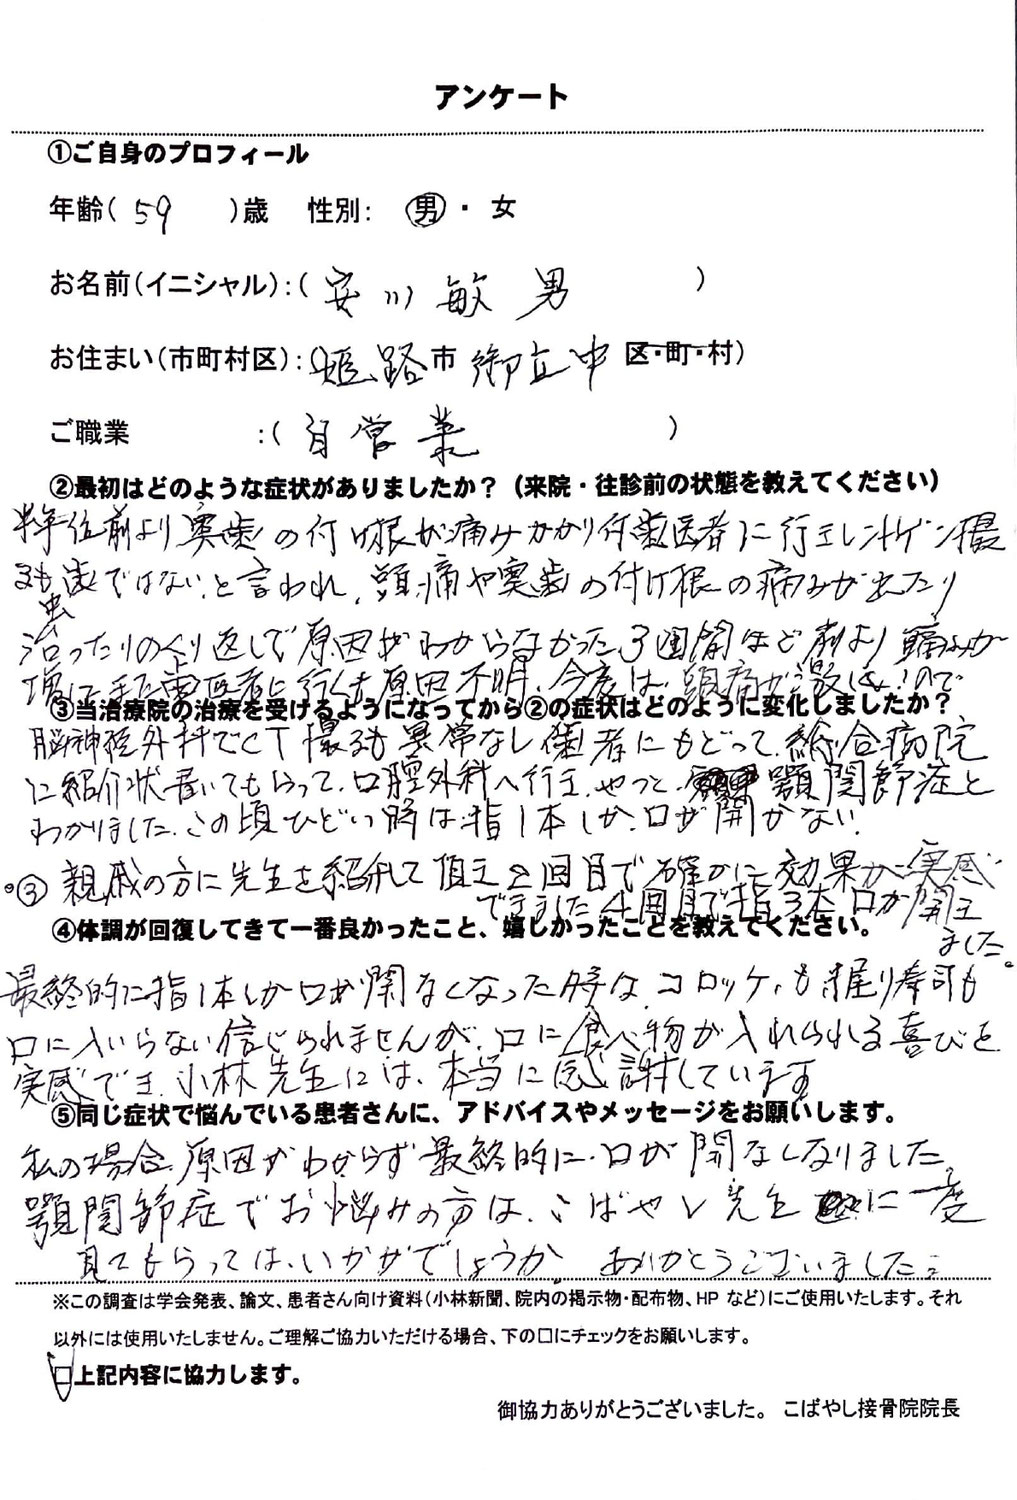 アンケート
①ご自身のプロフィール
年齢( 59 )歳 性別: 男・女
お名前(イニシャル):( 安川 敏男 )
お住まい(市町村区):( 姫路市 御立中 区・町・村)
ご職業 :( 自営業 )
②最初はどのような症状がありましたか?(来院・往診前の状態を教えてください)
半年位前より奥歯の付け根が痛みかかり付歯医者に行きレントゲン撮
るも虫歯ではないと言われ、頭痛や奥歯の付け根の痛みが出たり
治ったりのくり返しで原因がわからなかった。3週間ほど前より痛みが
増してまた歯医者に行くも原因不明、今度は、頭痛が激しいので
③当治療院の治療を受けるようになってから②の症状はどのように変化しましたか?
脳神経外科でCT撮るも異常なし歯医者にもどって、総合病院
に紹介状書いてもらって、口腔外科へ行き、やっと、顎関節症と
わかりました。この頃ひどい時は指1本しか口が開かない。
③親戚の方に先生を紹介して頂き2回目で確かに効果が実感
できました 4回目で指3本口が開き
④体調が回復してきて一番良かったこと、嬉しかったことを教えてください。
ました。
最終的に指1本しか口が開なくなった時は、コロッケも握り寿司も
口に入いらない信じられませんが、口に食べ物が入れられる喜びを
実感でき、小林先生には、本当に感謝しています
⑤同じ症状で悩んでいる患者さんに、アドバイスやメッセージをお願いします。
私の場合、原因がわからず最終的に、口が開なくなりました。
顎関節症でお悩みの方は、こばやし先生に一度
見てもらっては、いかがでしょうか。ありがとうございました。
※この調査は学会発表、論文、患者さん向け資料(小林新聞、院内の掲示物・配布物、HP など)にご使用いたします。それ
以外には使用いたしません。ご理解ご協力いただける場合、下の□にチェックをお願いします。
□上記内容に協力します。
御協力ありがとうございました。 こばやし接骨院院長